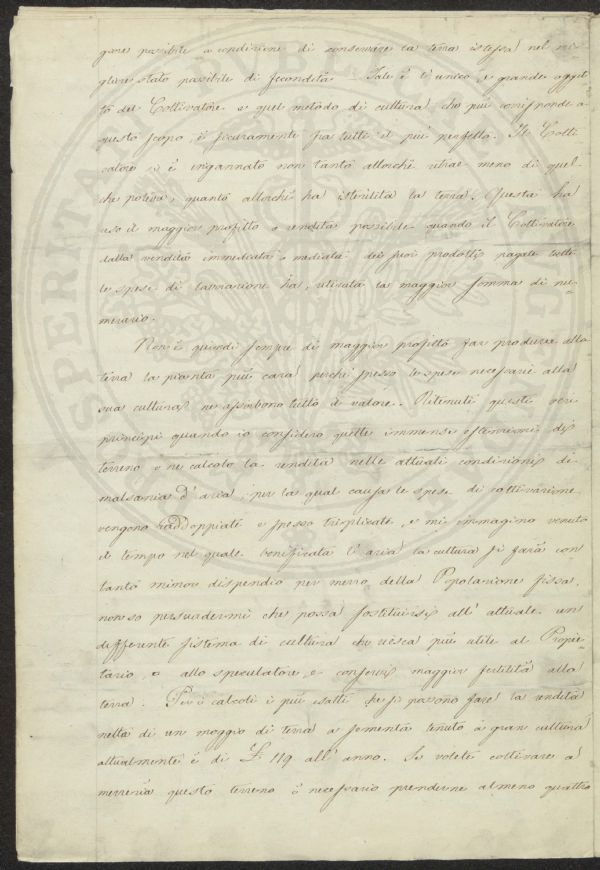 giore possibile a condizione di conservare la terra istessa nel mi-
gliore stato possibile di fecondità. Tale è l'unico, e grande ogget-
to del Coltivatore e quel metodo di cultura che più corrisponde a
questo scopo, è sicuramente fra tutti il più perfetto. Il Colti-
vatore si è ingannato non tanto allorchè ritrae meno di quel
che poteva, quanto allorchè ha isterilita la terra. Questa ha
reso il maggior profitto o rendita possibile quando il Coltivatore
dalla vendita immediata o mediata dei suoi prodotti pagate tutte
le spese di lavorazione ha ritirata la maggior somma di nu-
merario.
Non è quindi sempre di maggior profitto far produrre alla
terra la pianta più cara perchè spesso le spese necessarie alla
sua cultura ne assorbono tutto il valore. Ritenuti questi veri
principi quando io considero quelle immense estensioni di
terreno e ne calcolo la rendita nelle attuali condizioni di
malsania d'aria, per la qual causa le spese di coltivazione
vengono raddoppiate e spesso triplicate, e mi immagino venuto
il tempo nel quale bonificata l'aria la cultura si farà con
tanto minor dispendio per mezzo della Popolazione fissa,
non so persuadermi che possa sostituirsi all'attuale un
differente sistema di cultura che riesca più utile al Proprie-
tario, e allo speculatore, e conservi maggior fertilità alla
terra. Per i calcoli i più esatti che si possono fare la rendita
netta di un moggio di terra a sementa tenuto a gran cultura
attualmente è di £ 119 all'anno. Se volete coltivare a
mezzeria questo terreno è necessario prenderne almeno quattro